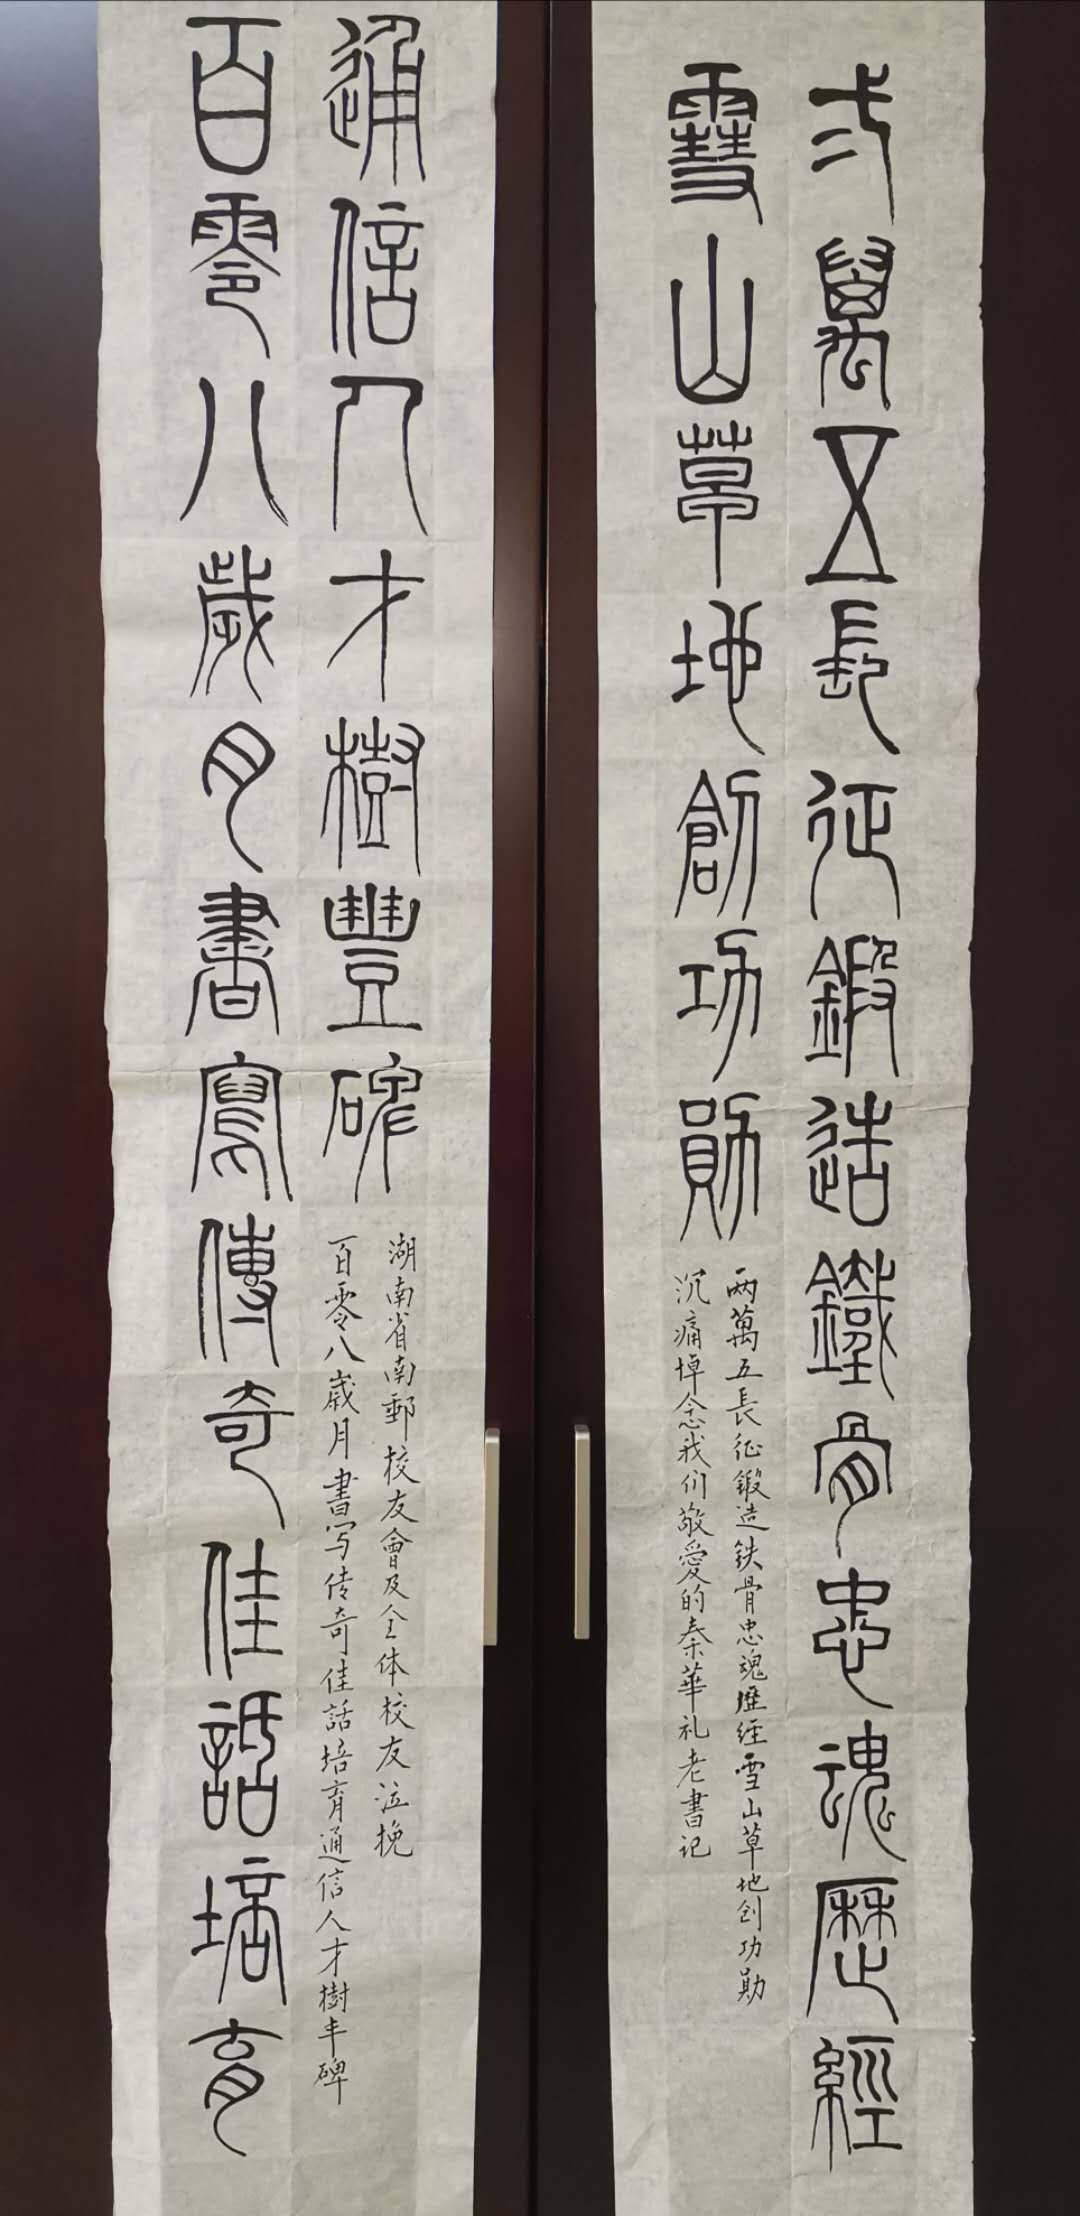 弍萬五長征鍛造鐵骨忠魂歷經
雪山草地創功勛
两萬五長征鍛造铁骨忠魂歷经雪山草地创功勋
沉痛悼念我们敬愛的秦華礼老書记
百零八歲月書寫傳奇佳話培育
通信人才樹豐碑
百零八歲月書写传奇佳話培育通信人才樹丰碑
湖南省南郵校友會及全体校友泣挽